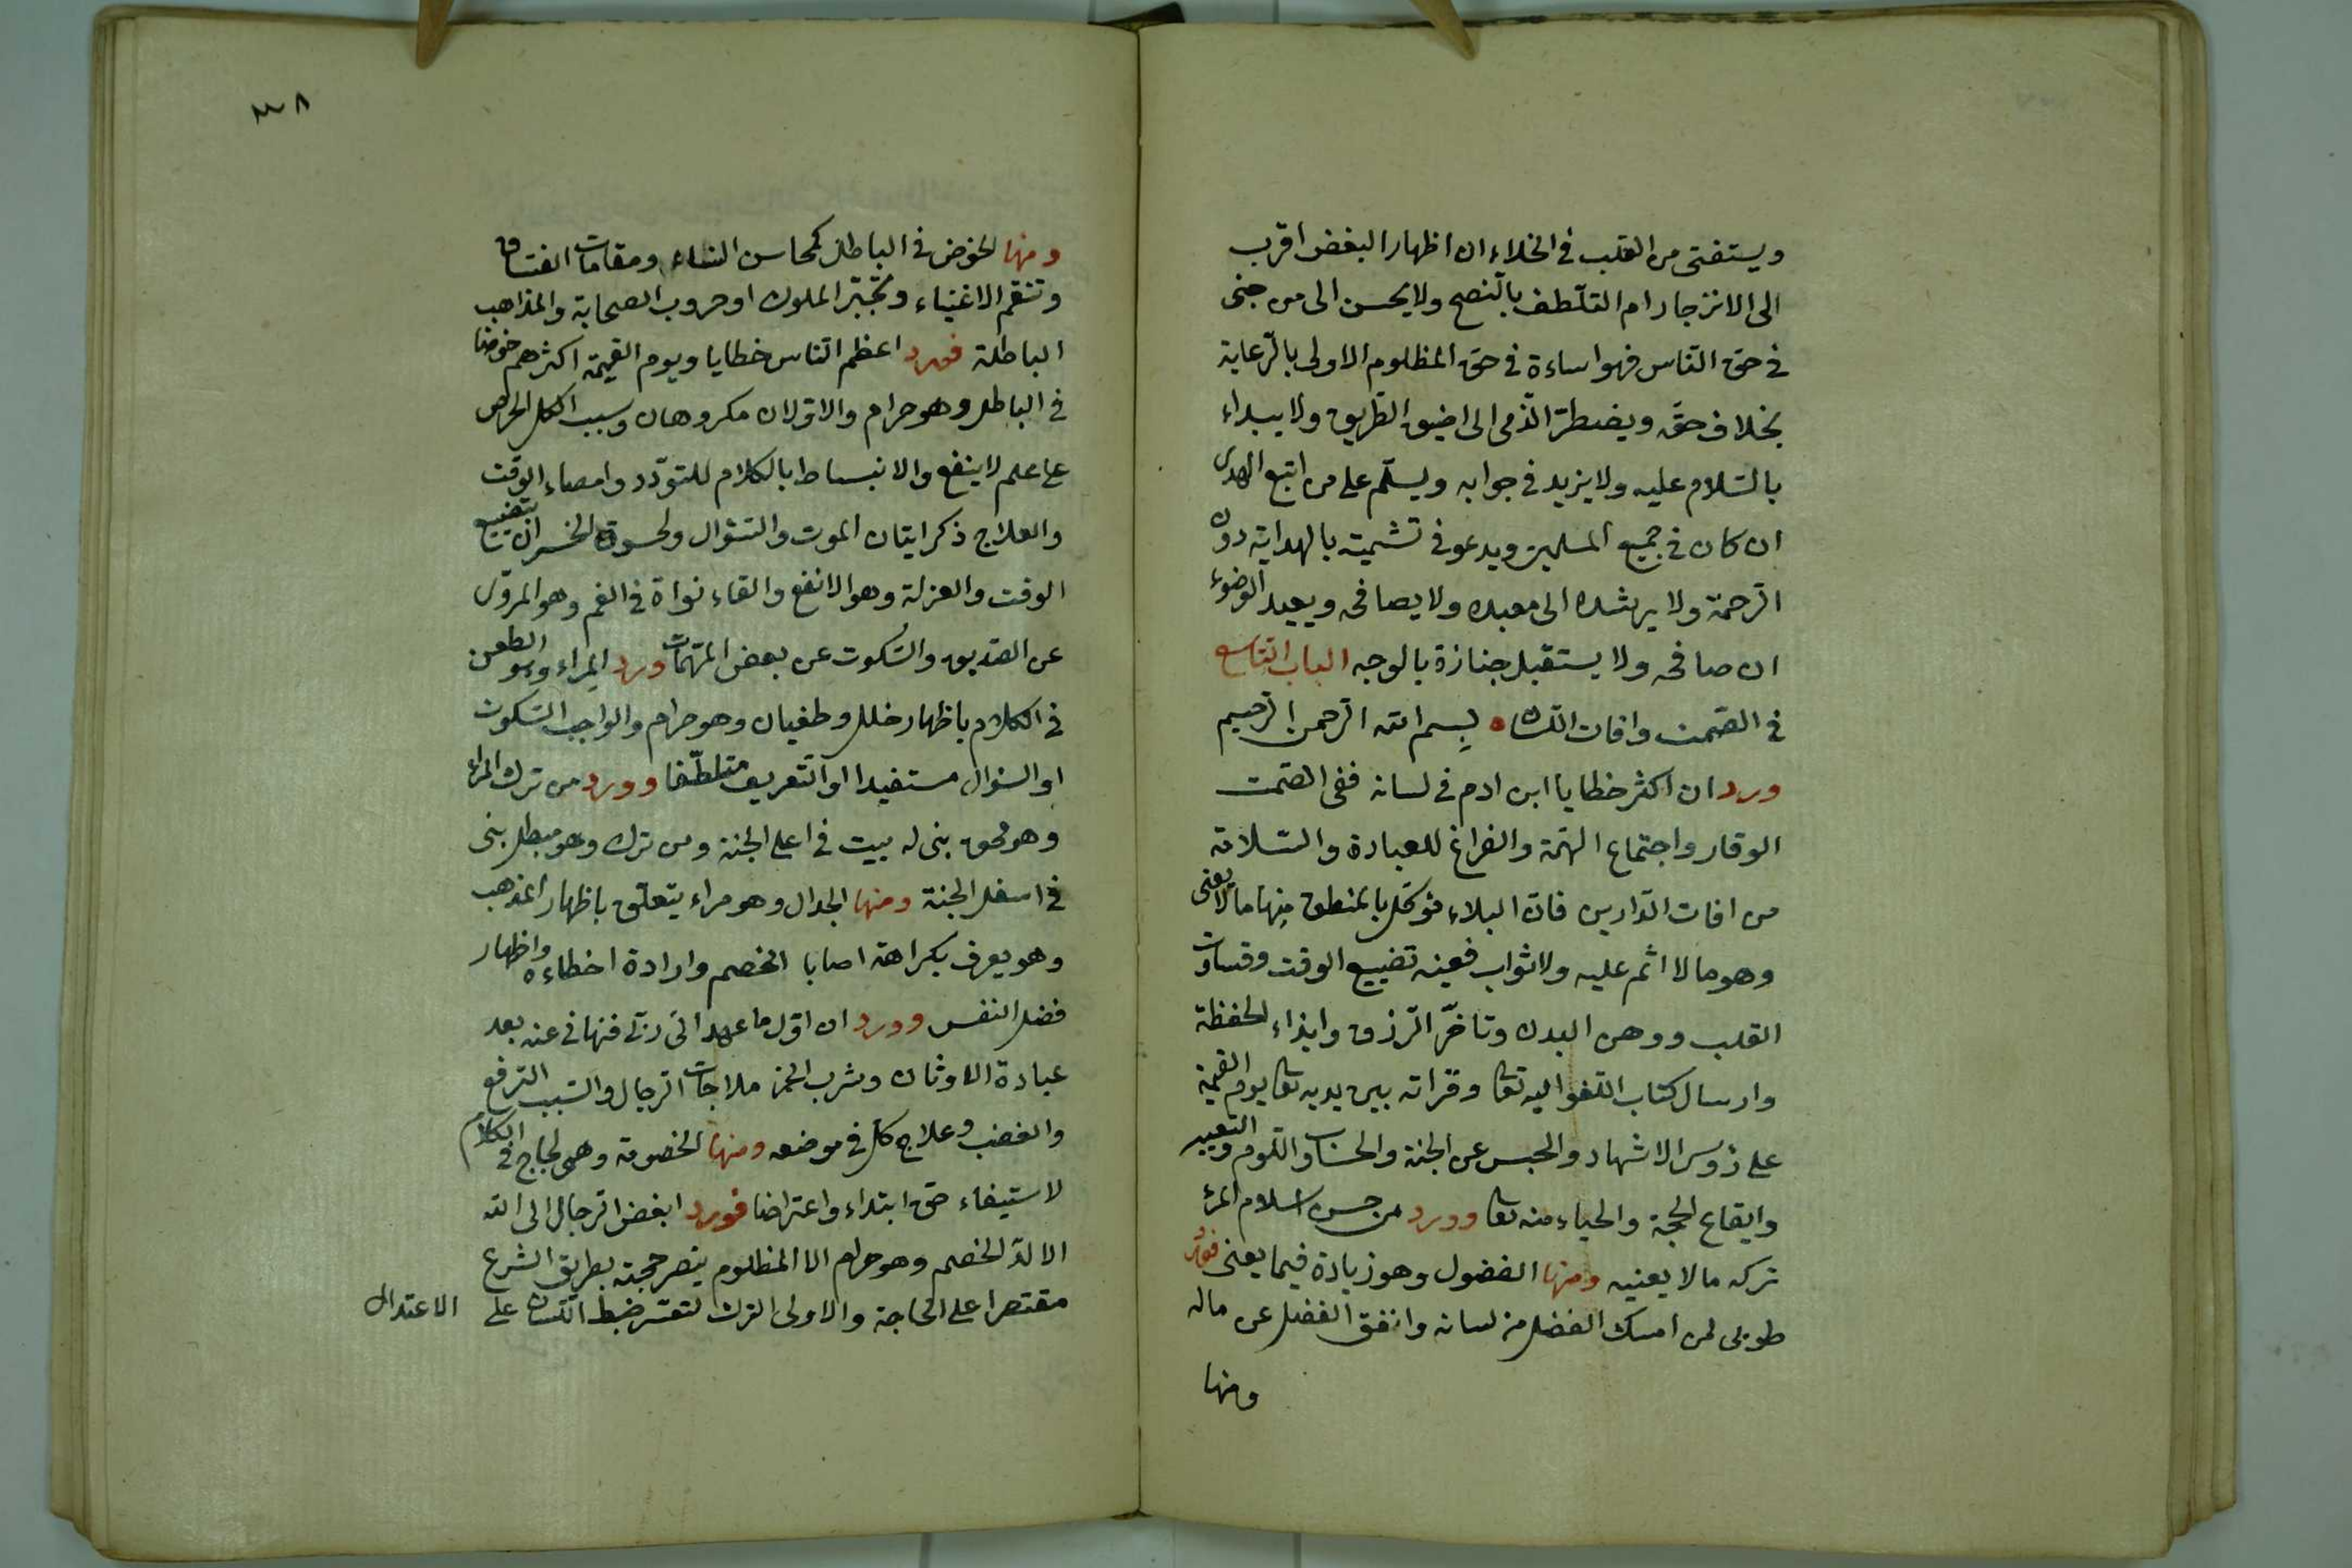 ويستفتى من القلب فى الخلاء ان اظهار البغض اقرب
الى الانزجار ام التلطف بالنصح ولا يحسن الى من جنى
فى حق الناس فهو اساءة فى حق المظلوم الاولى بالرعاية
بخلاف حقه ويضطر الذمى الى اضيق الطريق ولا يبداء
بالسلام عليه ولا يزيد فى جوابه ويسلم على من اتبع الهدى
ان كان فى جميع المسلمين ويدعو فى تشميته بالهداية دون
الرحمة ولا يرشده الى معبده ولا يصافحه ويعيد الوضوء
ان صافحه ولا يستقبل جنازة بالوجه الباب التاسع
فى الصمت وافات اللسان بسم الله الرحمن الرحيم
ورد ان اكثر خطايا ابن ادم فى لسانه ففى الصمت
الوقار واجتماع الهمة والفراغ للعبادة والسلامة
من افات الدارين فان البلاء موكل بالمنطق منها ما لا يعنى
وهو ما لا اثم عليه ولا ثواب فعينه تضييع الوقت وقساوة
القلب ووهن البدن وتاخر الرزق وايذاء الحفظة
وارسال كتاب اللغو اليه تعا وقراته بين يديه تعا يوم القيمة
على رؤس الاشهاد والحبس عن الجنة والحساب واللوم والتعيير
وايقاع الحجة والحياء منه تعا وورد من حسن اسلام المرء
تركه ما لا يعنيه ومنها الفضول وهو زيادة فيما يعنى فورد
طوبى لمن امسك الفضل من لسانه وانفق الفضل عن ماله
ومنها
٣٨
ومنها الخوض فى الباطل كمحاسن النساء ومقامات الفساق
وتنعم الاغنياء وتجبر الملوك او حروب الصحابة والمذاهب
الباطلة فورد اعظم الناس خطايا ويوم القيمة اكثرهم خوضا
فى الباطل وهو حرام والاولان مكروهان وسبب الكل الحرص
على علم لا ينفع والانبساط بالكلام للتودد وامضاء الوقت
والعلاج ذكر ايتان الموت والسؤال ولحسوق الخسران بتضييع
الوقت والعزلة وهو الانفع والقاء نواة فى الفم وهو المروى
عن الصديق والسكوت عن بعض المهمات ورد المراء وهو الطعن
فى الكلام باظهار خلل وطغيان وهو حرام والواجب السكوت
او السؤال مستفيدا او التعريف متلطفا وورد من ترك المراء
وهو محق بنى له بيت فى اعلى الجنة ومن ترك وهو مبطل بنى
فى اسفل الجنة ومنها الجدال وهو مراء يتعلق باظهار المذهب
وهو يعرف بكراهة اصابا الخصم وارادة اخطاءه واظهار
فضل النفس وورد ان اول ما عهد الى ربى فنهانى عنه بعد
عبادة الاوثان وشرب الخمر ملاجات الرجال والسبب الترفع
والغضب وعلاج كل فى موضعه ومنها الخصومة وهى لجاج فى الكلام
لاستيفاء حق ابتداء واعتراضا فورد ابغض الرجال الى الله
الالد الخصم وهو حرام الا المظلوم ينصر حجته بطريق الشرع
مقتصرا على الحاجة والاولى الترك لتعسر ضبط اللسان على الاعتدال